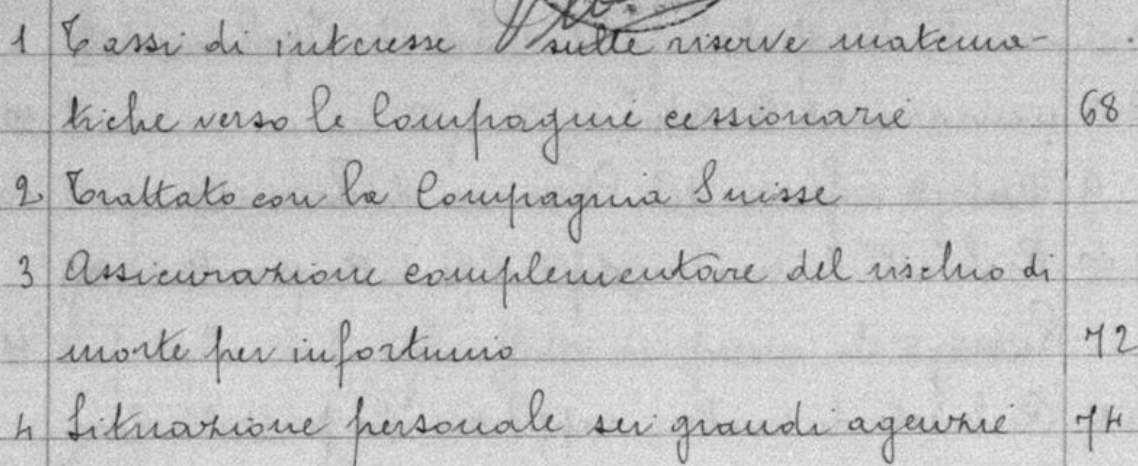 1 Tassi di interesse sulle riserve matema-
tiche verso le Compagnie cessionarie 68
2 Trattato con la Compagnia Suisse
3 Assicurazione complementare del rischio di
morte per infortunio 72
4 Situazione personale sei grandi agenzie 74